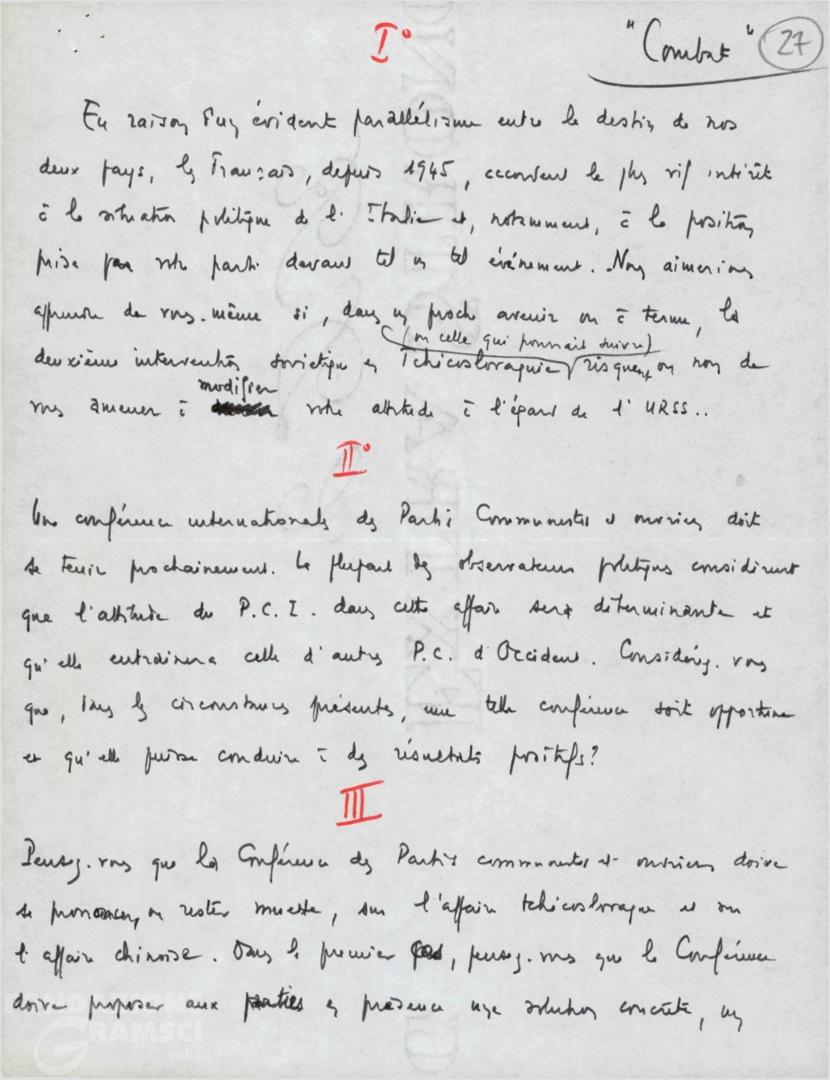 I°
"Combat" 27
En raison d'un évident parallélisme entre le destin de nos
deux pays, les Français, depuis 1945, accordent le plus vif intérêt
à la situation politique de l'Italie et, notamment, à la position
prise par votre parti devant tel ou tel événement. Nous aimerions
apprendre de vous-même si, dans un proche avenir ou à terme, la
(ou celle qui pourrait suivre)
deuxième intervention soviétique en Tchécoslovaquie risquent ou non de
modifier
vous amener à votre attitude à l'égard de l'URSS..
II°
Une conférence internationale des Partis Communistes et ouvriers doit
se tenir prochainement. La plupart des observateurs politiques considèrent
que l'attitude du P.C.I. dans cette affaire sera déterminante et
qu'elle entraînera celle d'autres P.C. d'Occident. Considérez-vous
que, dans les circonstances présentes, une telle conférence soit opportune
et qu'elle puisse conduire à des résultats positifs?
III
Pensez-vous que la Conférence des Partis communistes et ouvriers doive
se prononcer, ou rester muette, sur l'affaire tchécoslovaque et sur
l'affaire chinoise. Dans le premier cas, pensez-vous que la Conférence
doive proposer aux parties en présence une solution concrète, un
GRAMSCI